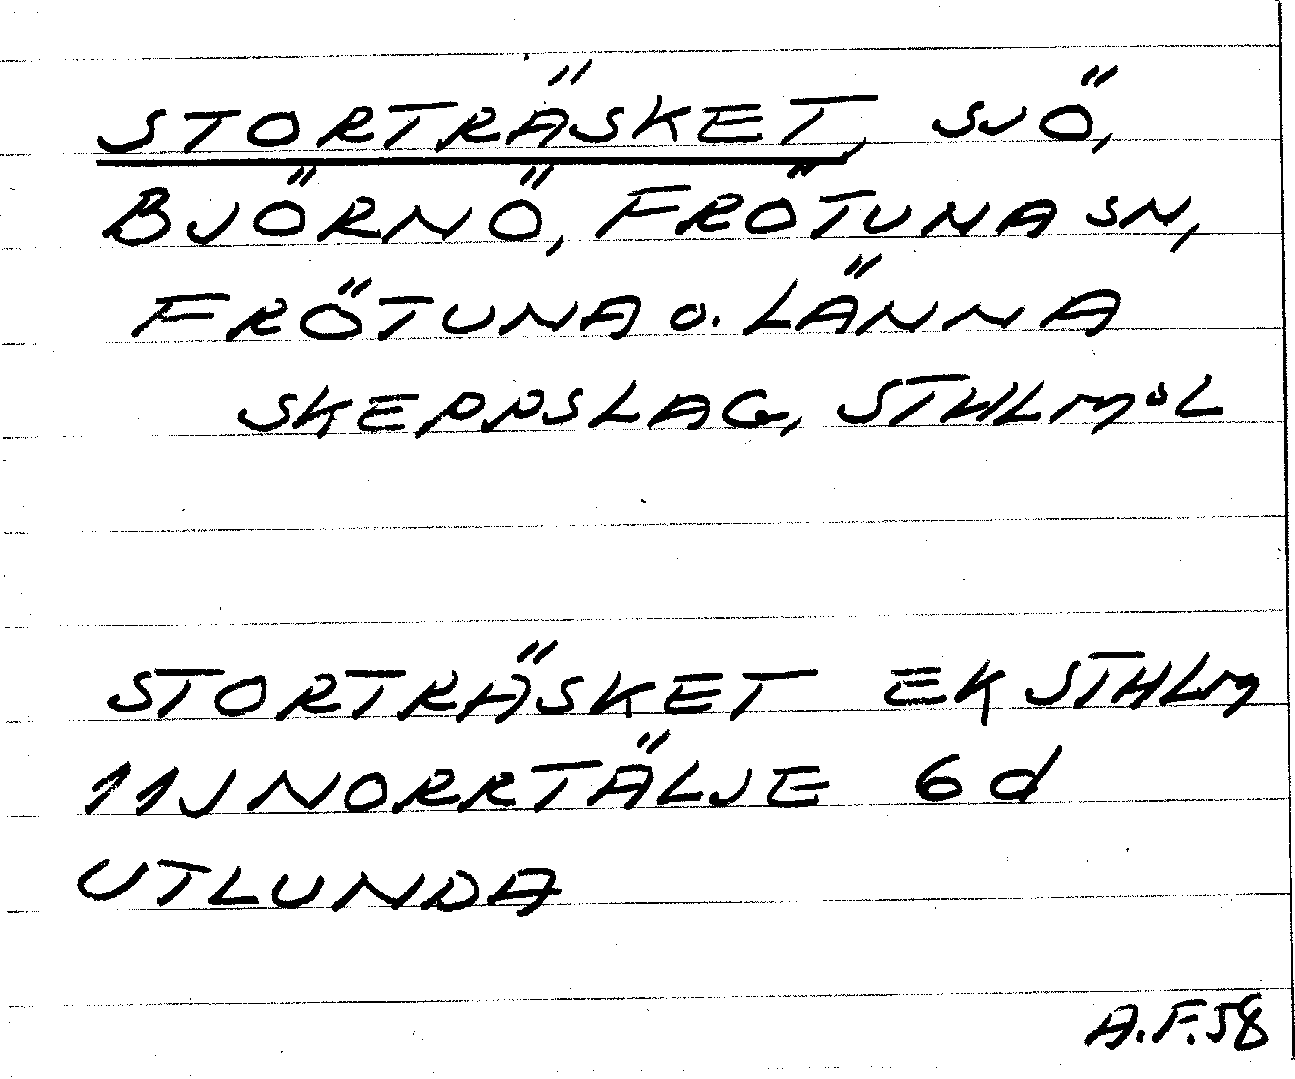 STORTRÄSKET, SJÖ,
BJÖRNÖ, FRÖTUNA SN,
FRÖTUNA o. LÄNNA
SKEPPSLAG, STHLMS L
STORTRÄSKET EK STHLM
11J NORRTÄLJE 6 d
UTLUNDA
A.F.58